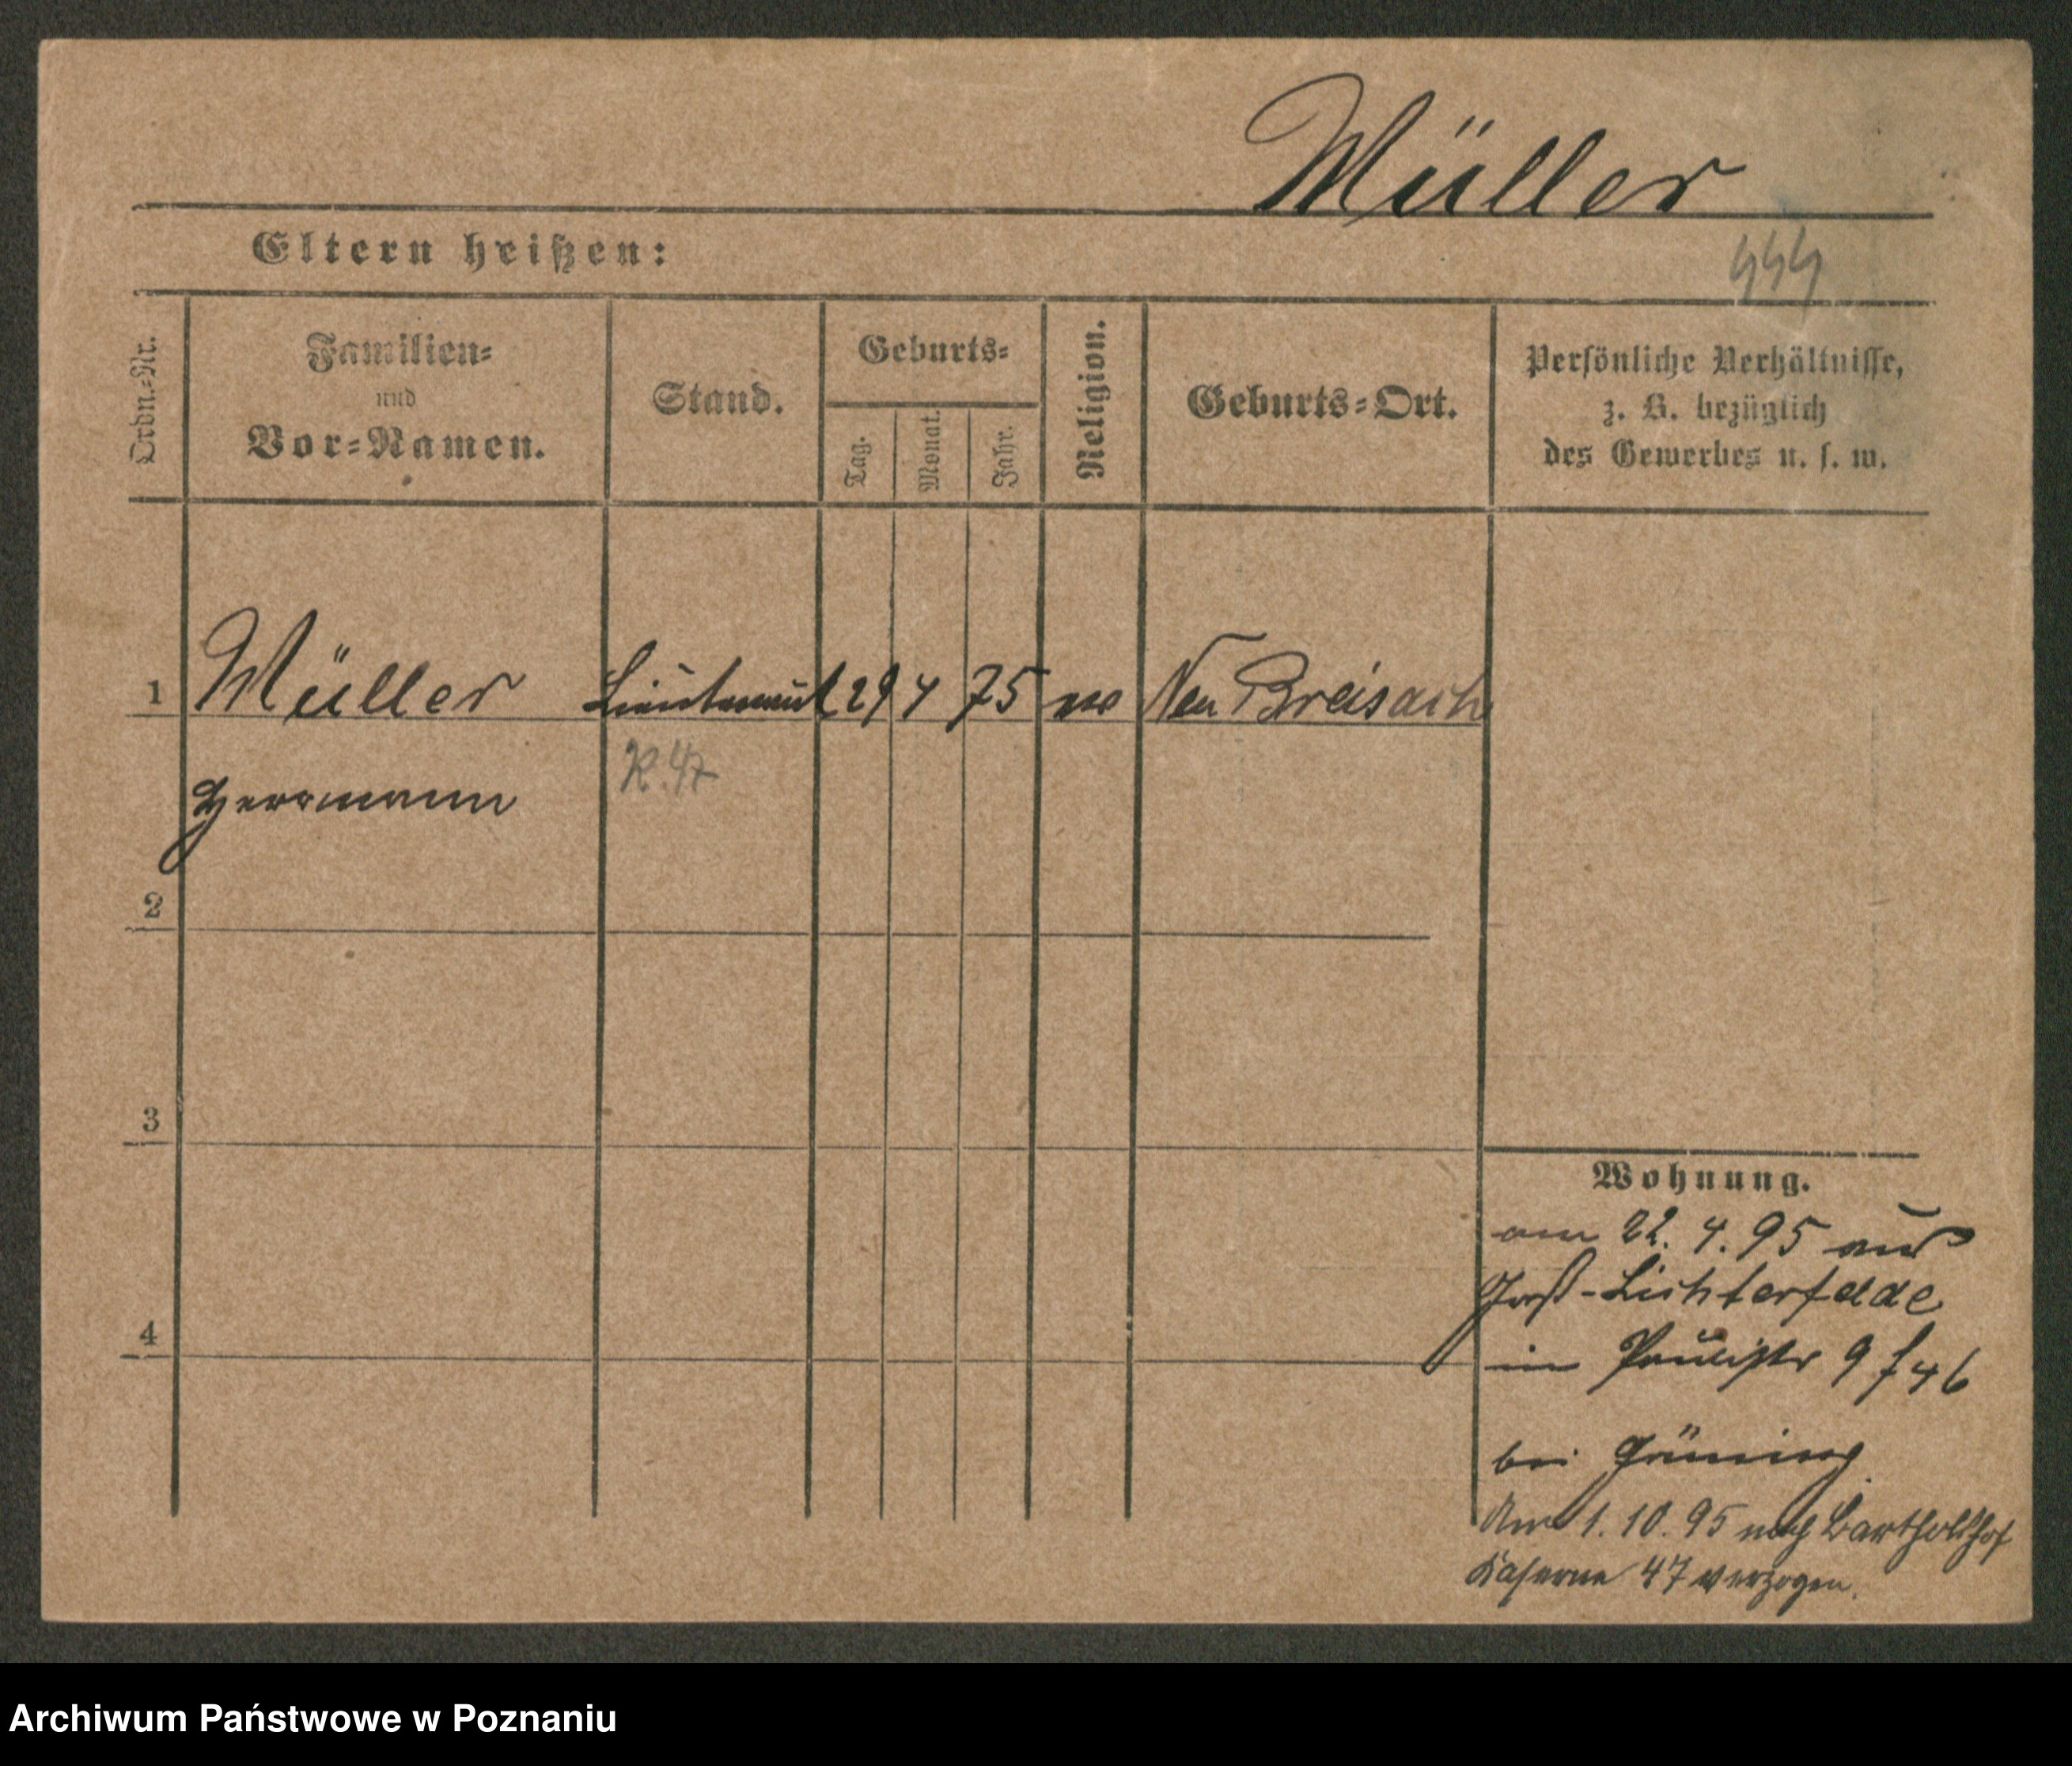 Müller
Eltern heißen:
444
Ordn.-Nr.
Familien-
und
Vor-Namen.
Stand.
Geburts-
Tag.
Monat.
Jahr.
Religion.
Geburts-Ort.
Persönliche Verhältnisse,
z. B. bezüglich
des Gewerbes u. s. w.
1 Müller Lieutenant 29 4 75 Neu Breisach
Herrmann R. 47
2
3
4
Wohnung.
am 22. 4. 95 aus
Groß-Lichterfelde
in Paulistr 9 f 46
bei Grüning
Am 1. 10. 95 nach Bartholdshof
Kaserne 47 verzogen.
Archiwum Państwowe w Poznaniu